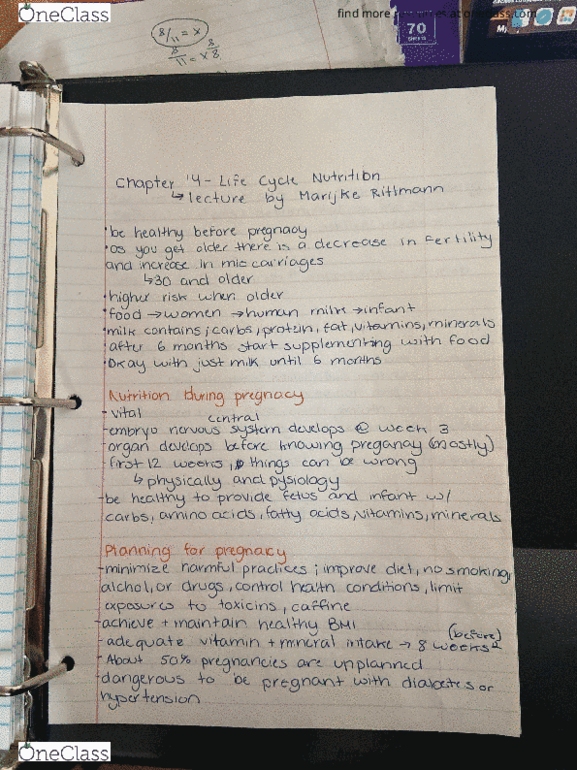 OneClass
find more resources at oneclass.com
8/11 = x
70
My
Chapter 14 - Life Cycle Nutrition
↳ lecture by Marijke Rittmann
• be healthy before pregnacy
• as you get older there is a decrease in fertility
and increase in miscarriages
↳ 30 and older
• higher risk when older
• food → women → human milk → infant
• milk contains; carbs, protein, fat, vitamins, minerals
after 6 months start supplementing with food
• Okay with just milk until 6 months
Nutrition during pregnacy
- vital
central
- embryo nervous system develops @ week 3
organ develops before knowing preganay (mostly)
first 12 weeks, things can be wrong
↳ physically and pysiology
- be healthy to provide fetus and infant w/
carbs, amino acids, fatty acids, vitamins, minerals
Planning for pregnacy
- minimize harmful practices; improve diet, no smoking,
alchol, or drugs, control health conditions, limit
exposures to toxicins, caffine
- achieve + maintain healthy BMI
(before)
- adequate vitamin + mineral intake → 8 weeks
- About 50% pregnancies are unplanned
- dangerous to be pregnant with diabetes or
hypertension
OneClass
OneClass